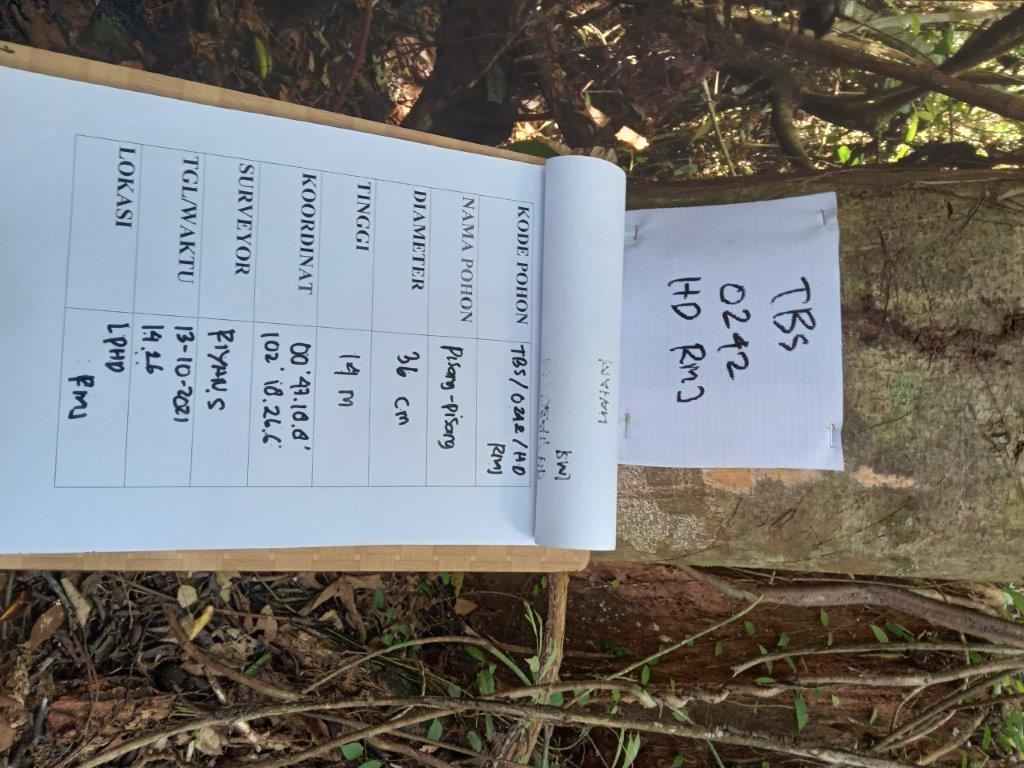 TBS
0242
HD RMJ
KODE POHON
TBS/0242/HD
RMJ
NAMA POHON
Pisang-pisang
DIAMETER
36 cm
TINGGI
14 M
KOORDINAT
00°47.18.8'
102° 18.26.6
SURVEYOR
RIYAN.S
TGL/WAKTU
13-10-2021
14.26
LOKASI
LPHD
RMJ